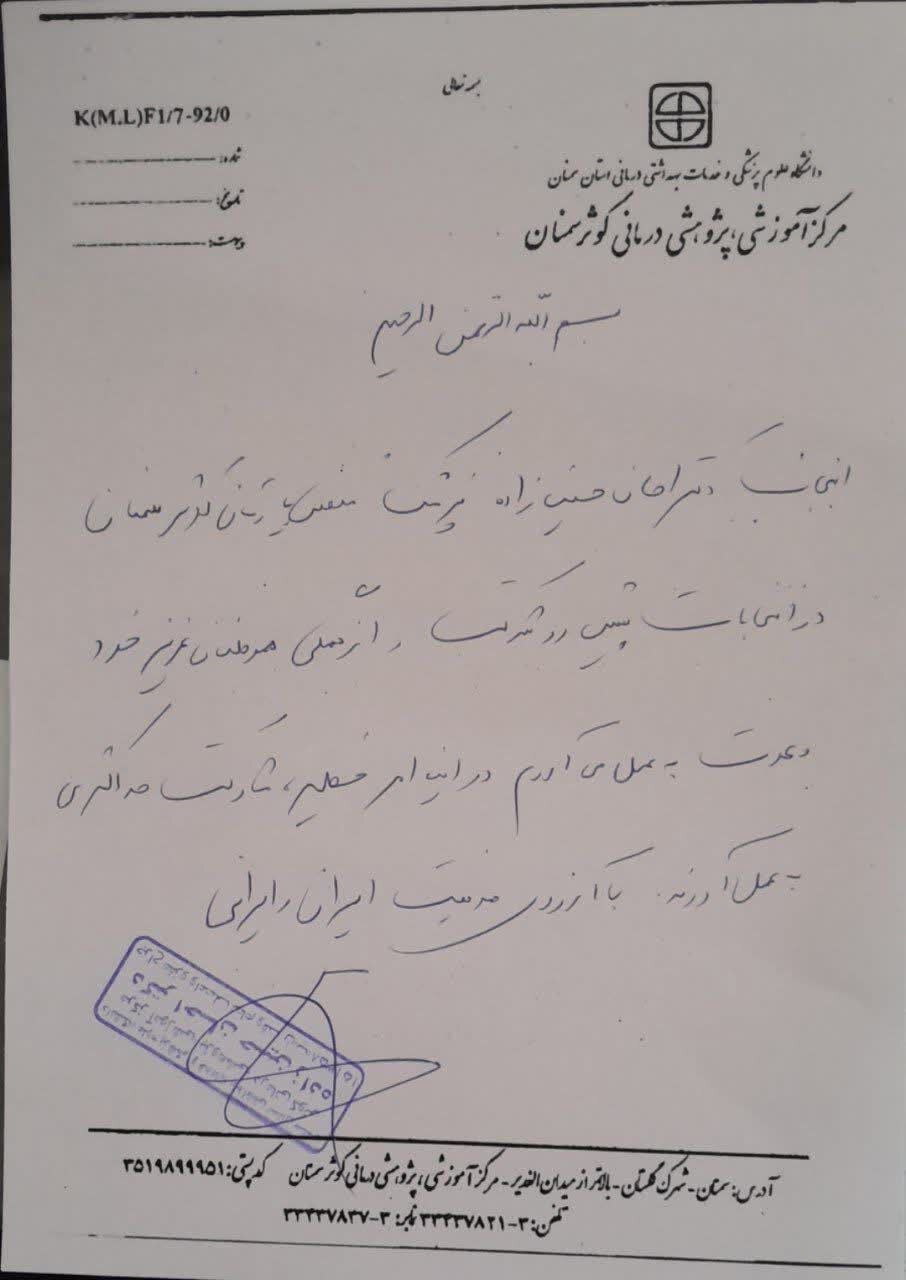 بسمه تعالی
K(M.L)F1/7-92/0
شماره:
تاریخ:
پیوست:
دانشگاه علوم پزشکی و خدمات بهداشتی درمانی استان سمنان
مرکز آموزشی، پژوهشی درمانی کوثر سمنان
بسم الله الرحمن الرحیم
اینجانب دکتر احسان حسین زاده پزشک متخصص بیمارستان کوثر سمنان
در انتخابات پیش رو شرکت و از تمامی هموطنان عزیز خود
دعوت به عمل می آورم در این امر خطیر، مشارکت حداکثری
به عمل آورند. با آرزوی موفقیت ایران و ایرانی
دکتر احسان حسین زاده
آدرس: سمنان - شهرک گلستان - بالاتر از میدان الغدیر - مرکز آموزشی، پژوهشی درمانی کوثر سمنان کد پستی: ۳۵۱۹۸۹۹۹۵۱
تلفن: ۳-۳۳۴۳۷۸۲۱ نمابر: ۳-۳۳۴۳۷۸۳۷